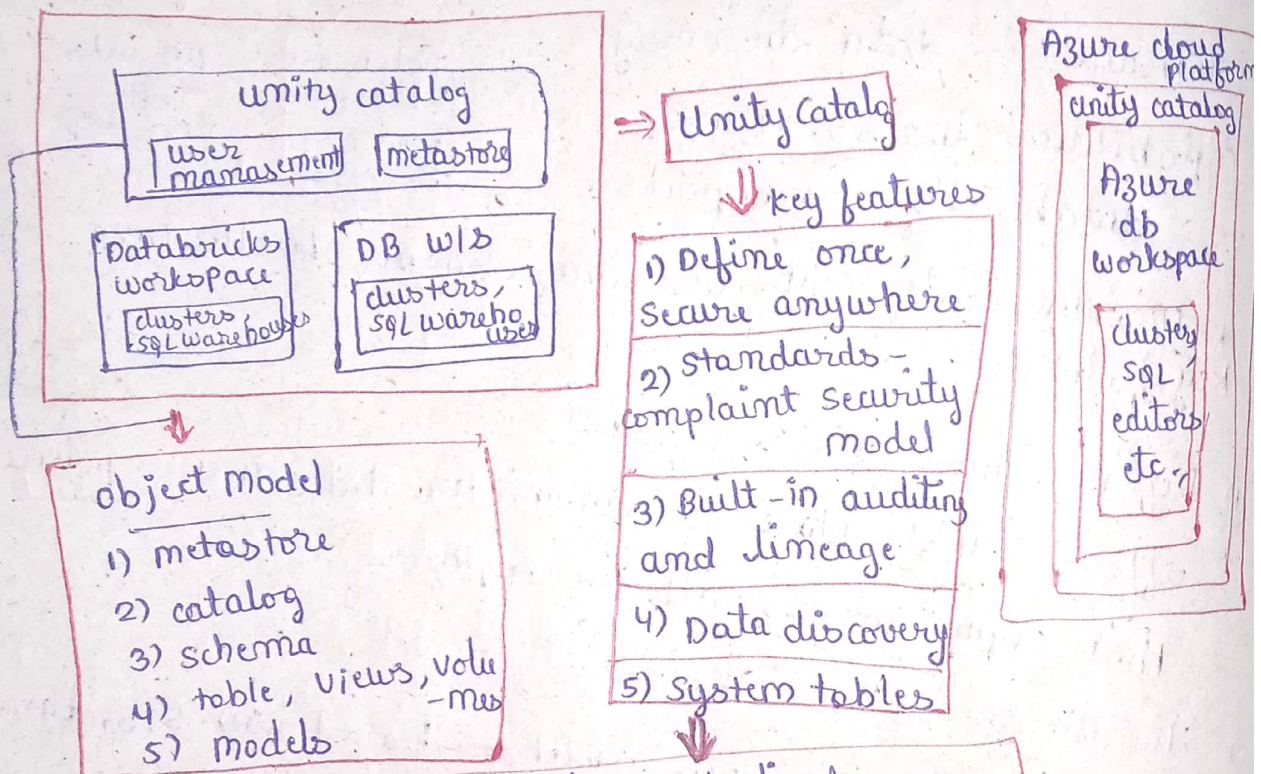 unity catalog
user
manasement
metastore
Databricks
workspace
clusters,
SQL warehouses
DB w/s
clusters,
SQL wareho
uses
object model
1) metastore
2) catalog
3) schema
4) table, views, volu
-mes
5) models
Unity Catalog
key features
1) Define once,
secure anywhere
2) Standards-
complaint security
model
3) Built-in auditing
and lineage
4) Data discovery
5) System tables
Azure cloud
platform
unity catalog
Azure
db
workspace
cluster,
SQL
editors
etc.,